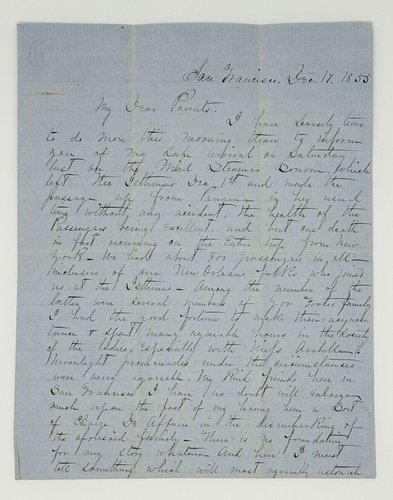 San Francisco. Dec. 17. 1855
My Dear Parents.
I have scarcely time
to do more this morning than to inform
you of my safe arrival on Saturday
last on the Mail Steamer Sonora, which
left the Isthmus Dec 1st and made the
passage up from Panama in her usual
time without any accident, the health of the
Passengers being excellent, and but one death
in fact occurring on the Entire trip from New
York – We had about 800 passengers in all –
Inclusive of our New Orleans folks who joined
us at the Isthmus – Among the number of the
latter were several members of Gov "Footes" family
I had the good fortune to make their acquain
tance & spent many agreable hours in the society
of the ladies, Especially with Miss
Moonlight promenades under the circumstances
were very agreable. My kind friends here in
San Francisco I have no doubt will enlarge
much upon the fact of my having been a Sort
of Charge De Affairs in the disembarking of
the aforesaid family – There is no foundation
for any story whatever – And here I must
tell something which will most agreably astonish